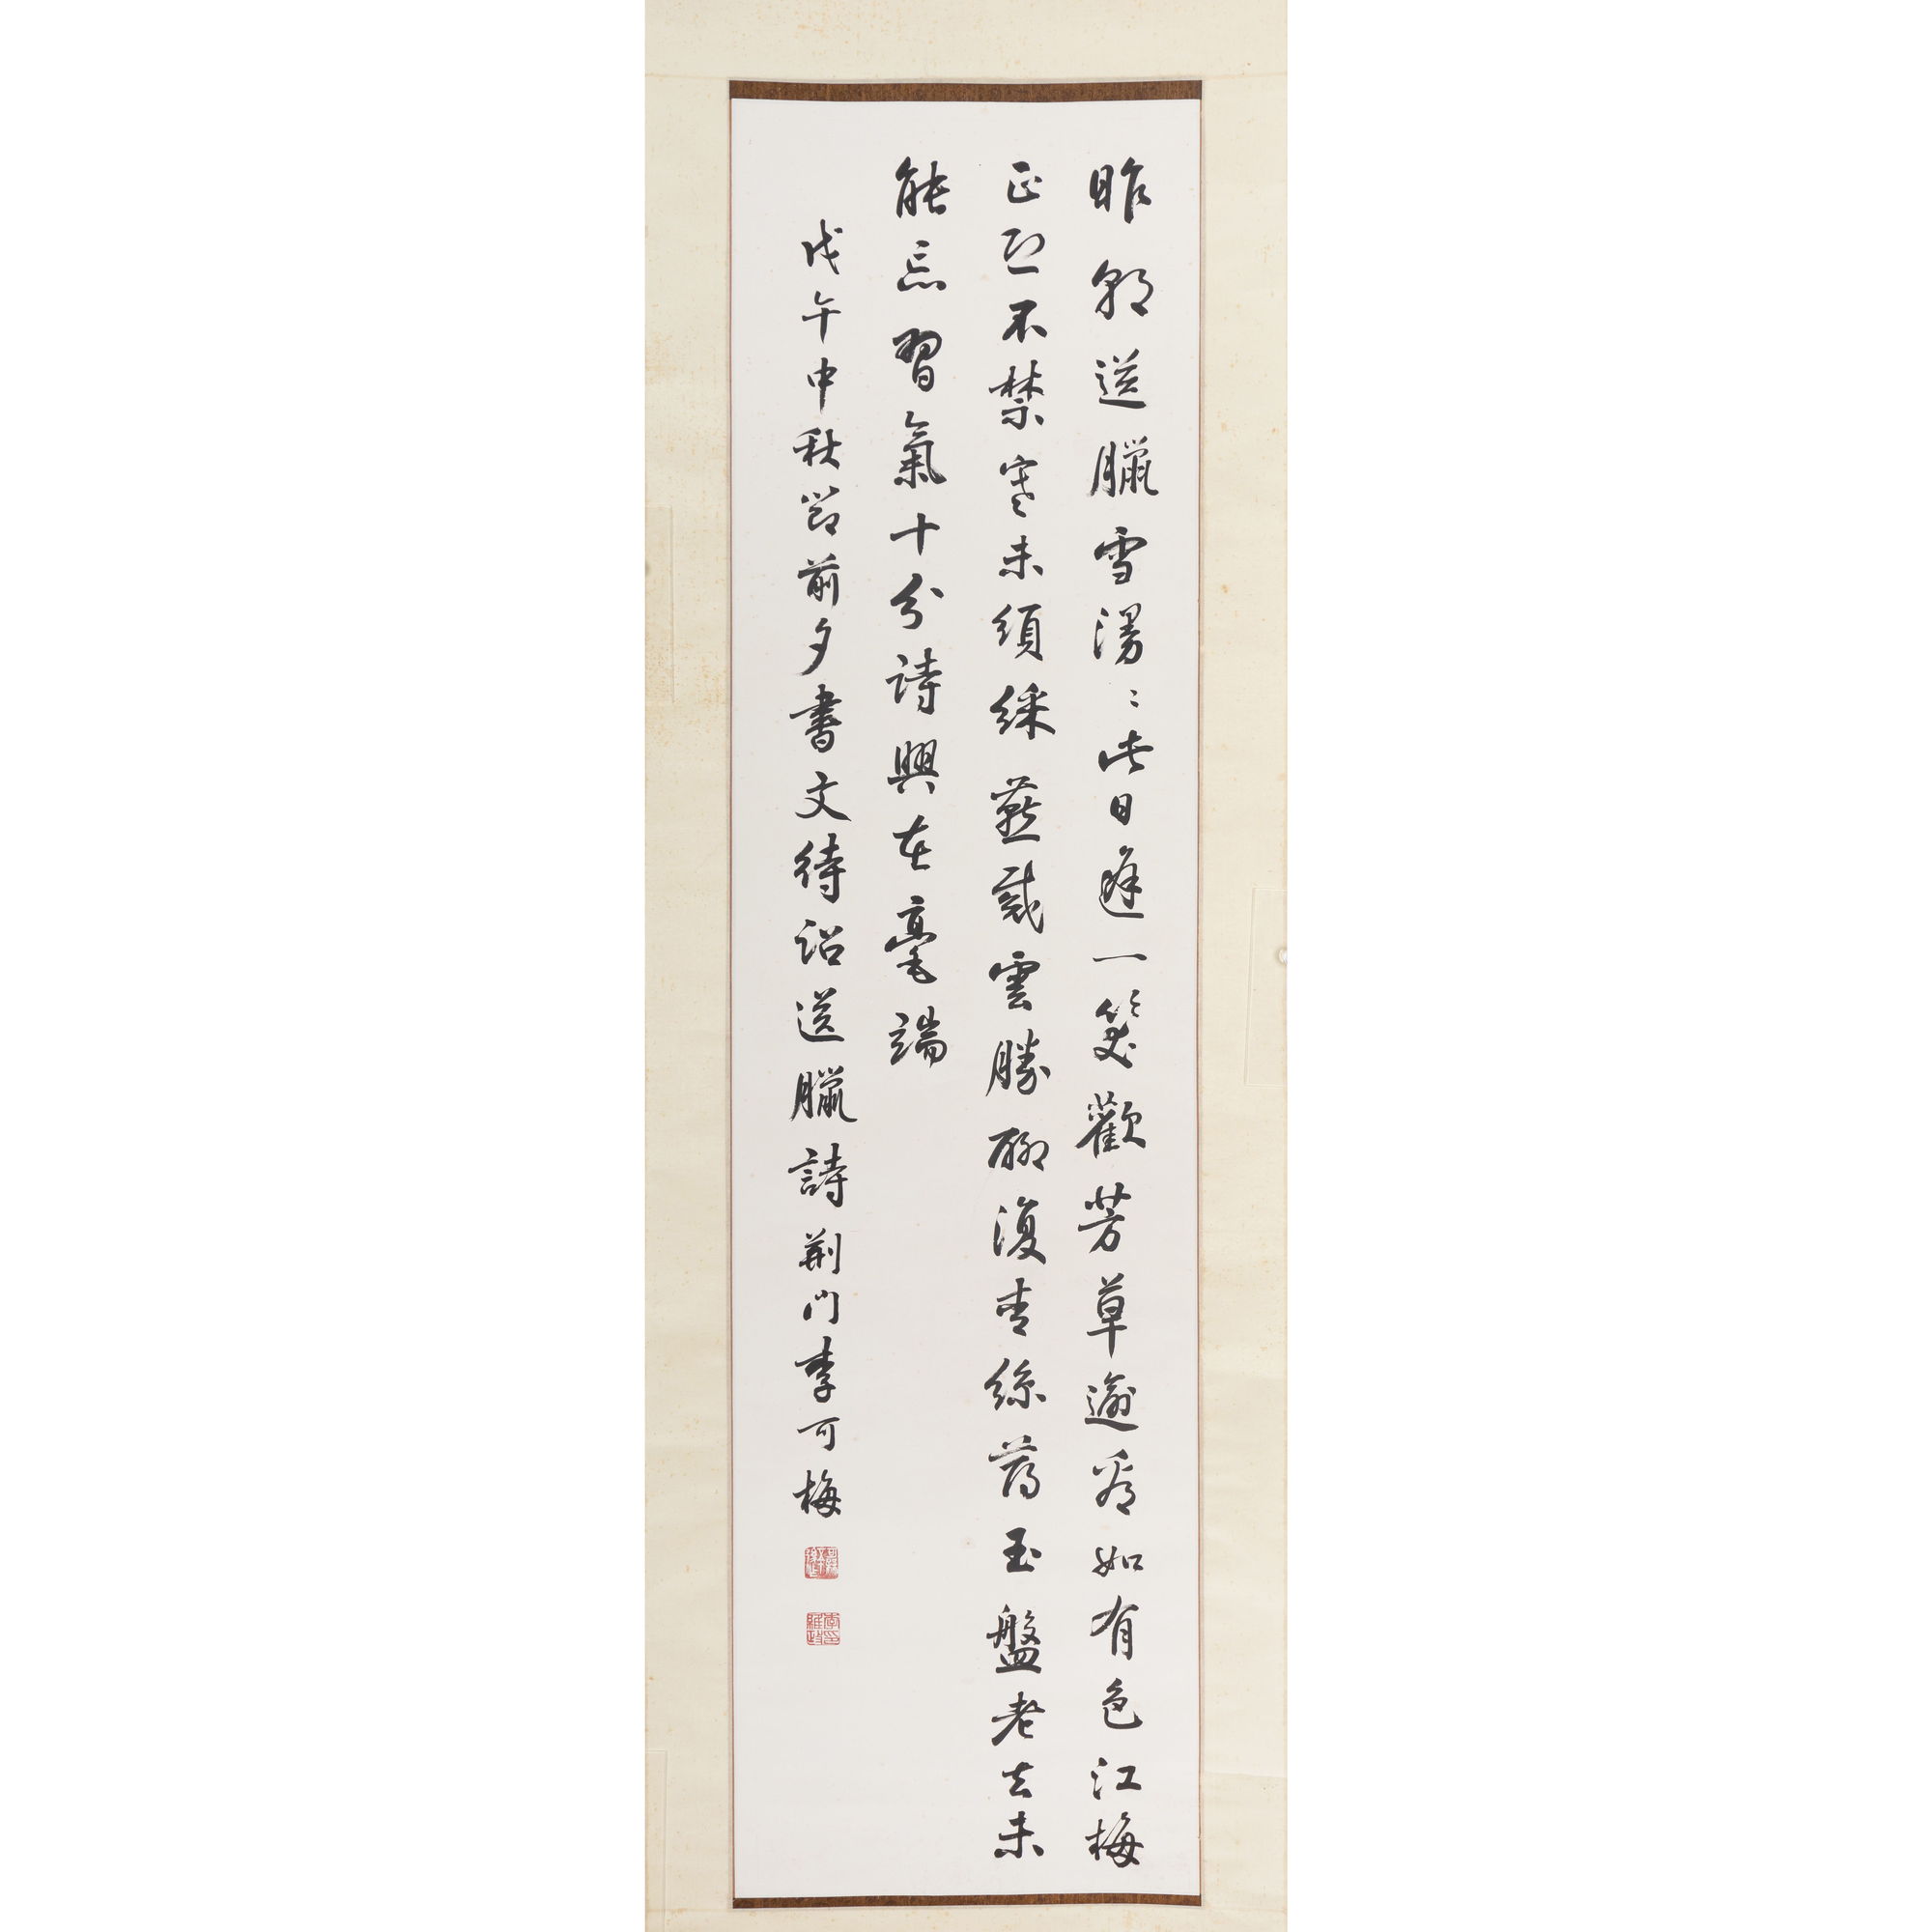 昨朝送臘雪漫〻此日逢一笑歡芳草遙看如有色江梅
正恐不禁寒未須綵燕裁雲勝聊復青絲薦玉盤老去未
能忘習氣十分詩興在毫端
戊午中秋節前夕書文待詔送臘詩荆門李可梅